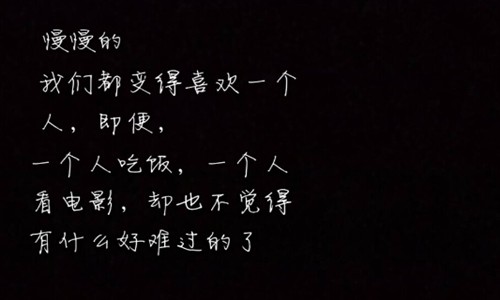 慢慢的
我们都变得喜欢一个
人，即便，
一个人吃饭，一个人
看电影，却也不觉得
有什么好难过的了